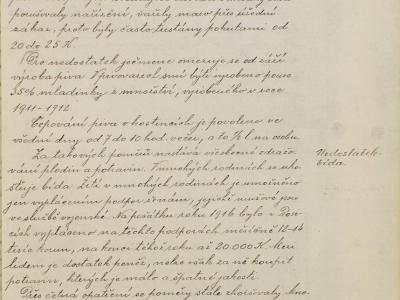 porušovaly nařízení, vařily maso přes úřední
zákaz, proto byly často trestány pokutami od
20 do 25 K.
Pro nedostatek ječmene omezuje se od září
výroba piva. V pivovarech smí býti vyrobeno pouze
35% mladinky z množství, vyrobeného v roce
1911-1912.
Čepování piva v hostincích je povoleno ve
všední dny od 7 do 10 hod. večer, a to ½ l na osobu.
Za takových poměrů nastává všeobecné zdražo-
vání plodin a potravin. V mnohých rodinách se uho-
stuje bída. Žití v mnohých rodinách je umožněno
jen vyplácením podpor ženám, jejichž mužové jsou
ve službě vojenské. Na počátku roku 1916 bylo v
cích vypláceno na těchto podporách měsíčně 12-14
tisíc korun, na konci téhož roku až 20.000 K. Mezi
lidem je dostatek peněz, nelze však za ně koupit
potravin, kterých je málo a špatné jakosti.
Přes četná opatření se poměry stále zhoršovaly.
Nedostatek-
bída.